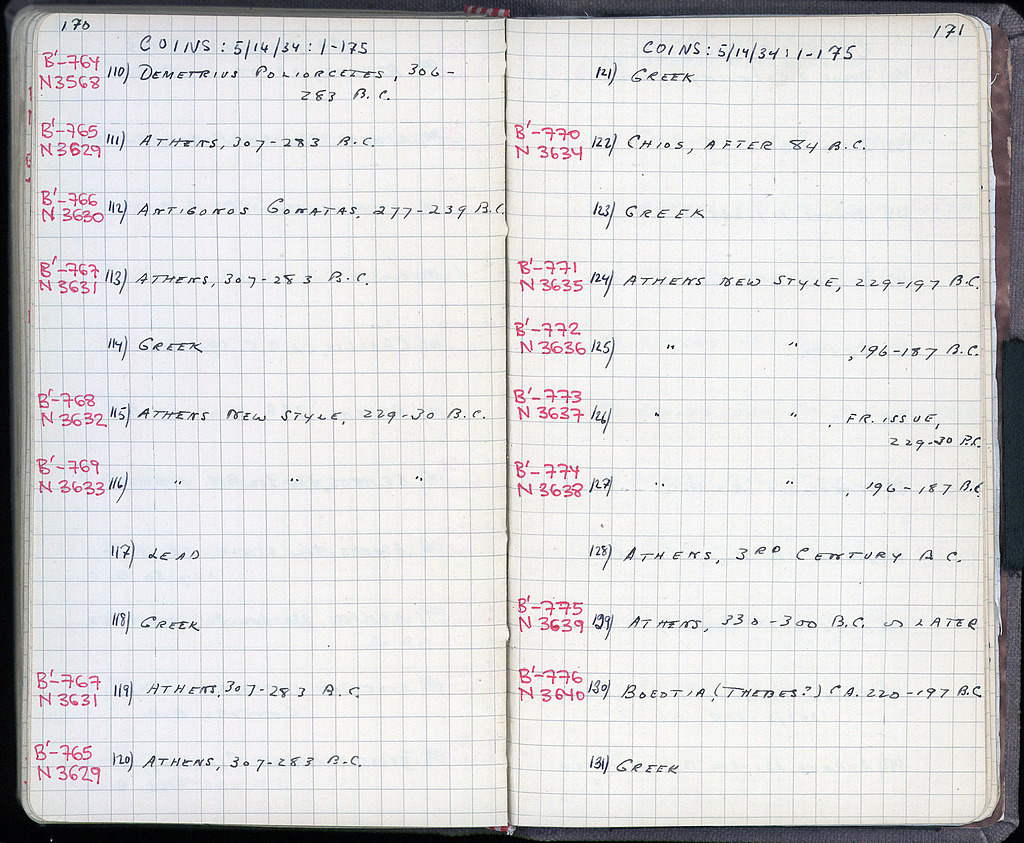 170
COINS: 5/14/34: 1-175
B'-764
N3568 110) DEMETRIUS POLIORCETES, 306-
283 B.C.
B'-765
N3629 111) ATHENS, 307-283 B.C.
B'-766
N3630 112) ANTIGONOS GONATAS, 277-239 B.C.
B'-767
N3631 113) ATHENS, 307-283 B.C.
114) GREEK
B'-768
N3632 115) ATHENS NEW STYLE, 229-30 B.C.
B'-769
N3633 116) " " "
117) LEAD
118) GREEK
B'-767
N3631 119) ATHENS, 307-283 B.C.
B'-765
N3629 120) ATHENS, 307-283 B.C.
171
COINS: 5/14/34: 1-175
121) GREEK
B'-770
N3634 122) CHIOS, AFTER 84 B.C.
123) GREEK
B'-771
N3635 124) ATHENS NEW STYLE, 229-197 B.C.
B'-772
N3636 125) " " , 196-187 B.C.
B'-773
N3637 126) " " , FR. ISSUE,
229-30 B.C.
B'-774
N3638 127) " " , 196-187 B.C.
128) ATHENS, 3RD CENTURY B.C.
B'-775
N3639 129) ATHENS, 330-300 B.C. LATER
B'-776
N3640 130) BOEOTIA (THEBES?) CA. 220-197 B.C.
131) GREEK